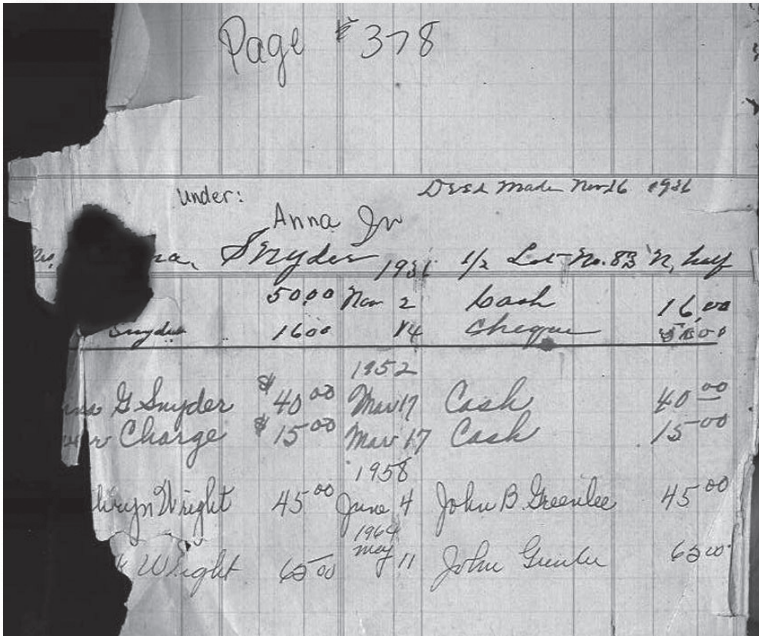 Page # 378
Deed Made Nov 16 1931
Under:
Anna
Snyder 1931 1/2 Lot No. 83 N, half
50 00 Nov 2 Cash 16,00
Snyder 16 00 14 Cheque
1952
G Snyder $40 00 Mar 17 Cash 40 00
Charge $15 00 Mar 17 Cash 15 00
1958
Wright 45 00 June 4 John B. Greenlee 45 00
1964
Wright 65 00 May 11 John Greenlee 65 00